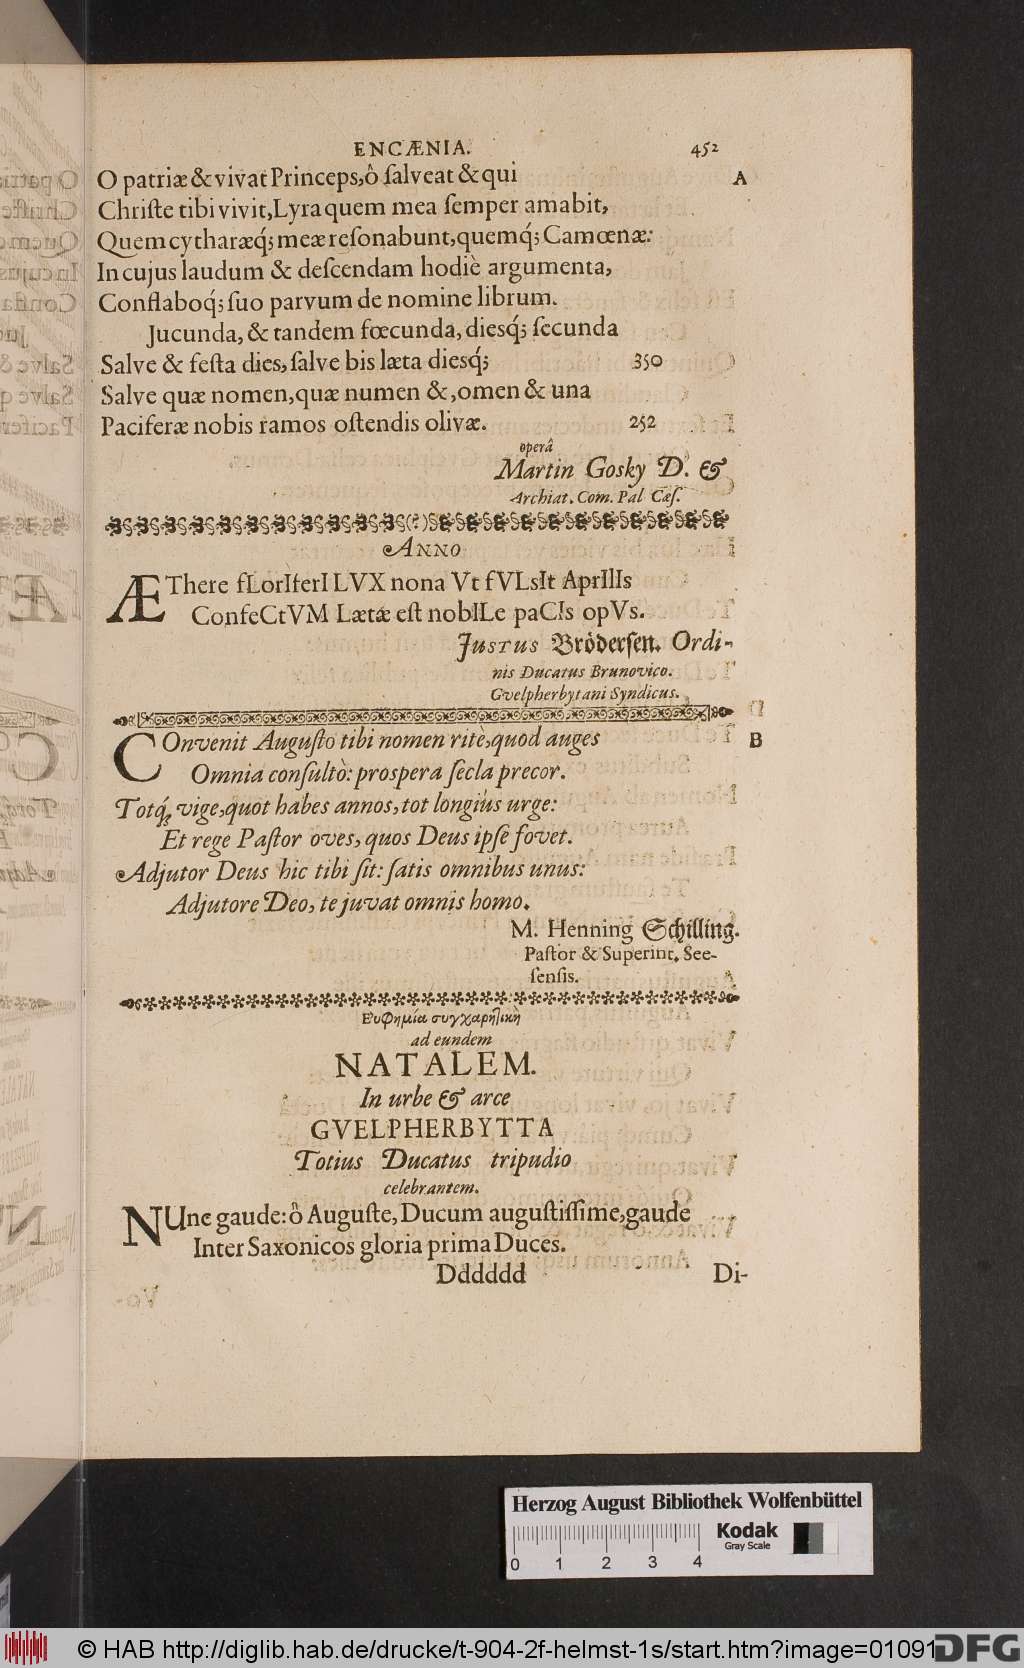 ENCÆNIA. 452
O patriæ & vivat Princeps, ô ſalveat & qui A
Chriſte tibi vivit, Lyra quem mea ſemper amabit,
Quem cytharæq́; meæ reſonabunt, quemq́; Camœnæ:
In cujus laudum & deſcendam hodiè argumenta,
Conflaboq́; ſuo parvum de nomine librum.
Jucunda, & tandem fœcunda, diesq́; ſecunda
Salve & feſta dies, ſalve bis læta diesq́; 350
Salve quæ nomen, quæ numen &, omen & una
Paciferæ nobis ramos oſtendis olivæ. 252
operâ
Martin Gosky D. &
Archiat. Com. Pal Cæſ.
(?)
ANNO
ÆThere fLorIferI LVX nona Vt fVLsIt AprIlIs
ConfeCtVM Lætæ eſt nobILe paCIs opVs.
Justus Brödersen. Ordi-
nis Ducatus Brunovico.
Gvelpherbytani Syndicus.
COnvenit Auguſto tibi nomen ritè, quod auges B
Omnia conſultò: proſpera ſecla precor.
Totq́; vige, quot habes annos, tot longiùs urge:
Et rege Paſtor oves, quos Deus ipſe fovet.
Adjutor Deus hic tibi ſit: ſatis omnibus unus:
Adjutore Deo, te juvat omnis homo.
M. Henning Schilling.
Paſtor & Superint. See-
ſenſis.
Ευφημία συγχαρητικὴ
ad eundem
NATALEM.
In urbe & arce
GVELPHERBYTTA
Totius Ducatus tripudio
celebrantem.
NUnc gaude: ô Auguſte, Ducum auguſtiſſime, gaude
Inter Saxonicos gloria prima Duces.
Dddddd Di-
Herzog August Bibliothek Wolfenbüttel
Kodak
Gray Scale
0 1 2 3 4
© HAB http://diglib.hab.de/drucke/t-904-2f-helmst-1s/start.htm?image=01091
DFG